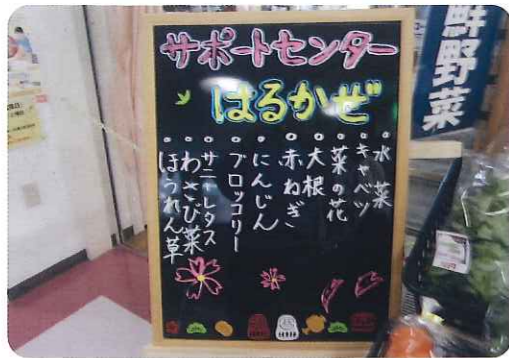 サポートセンター
はるかぜ
水菜
キャベツ
菜の花
大根
赤ねぎ
にんじん
ブロッコリー
サニーレタス
わさび菜
ほうれん草
鮮野菜